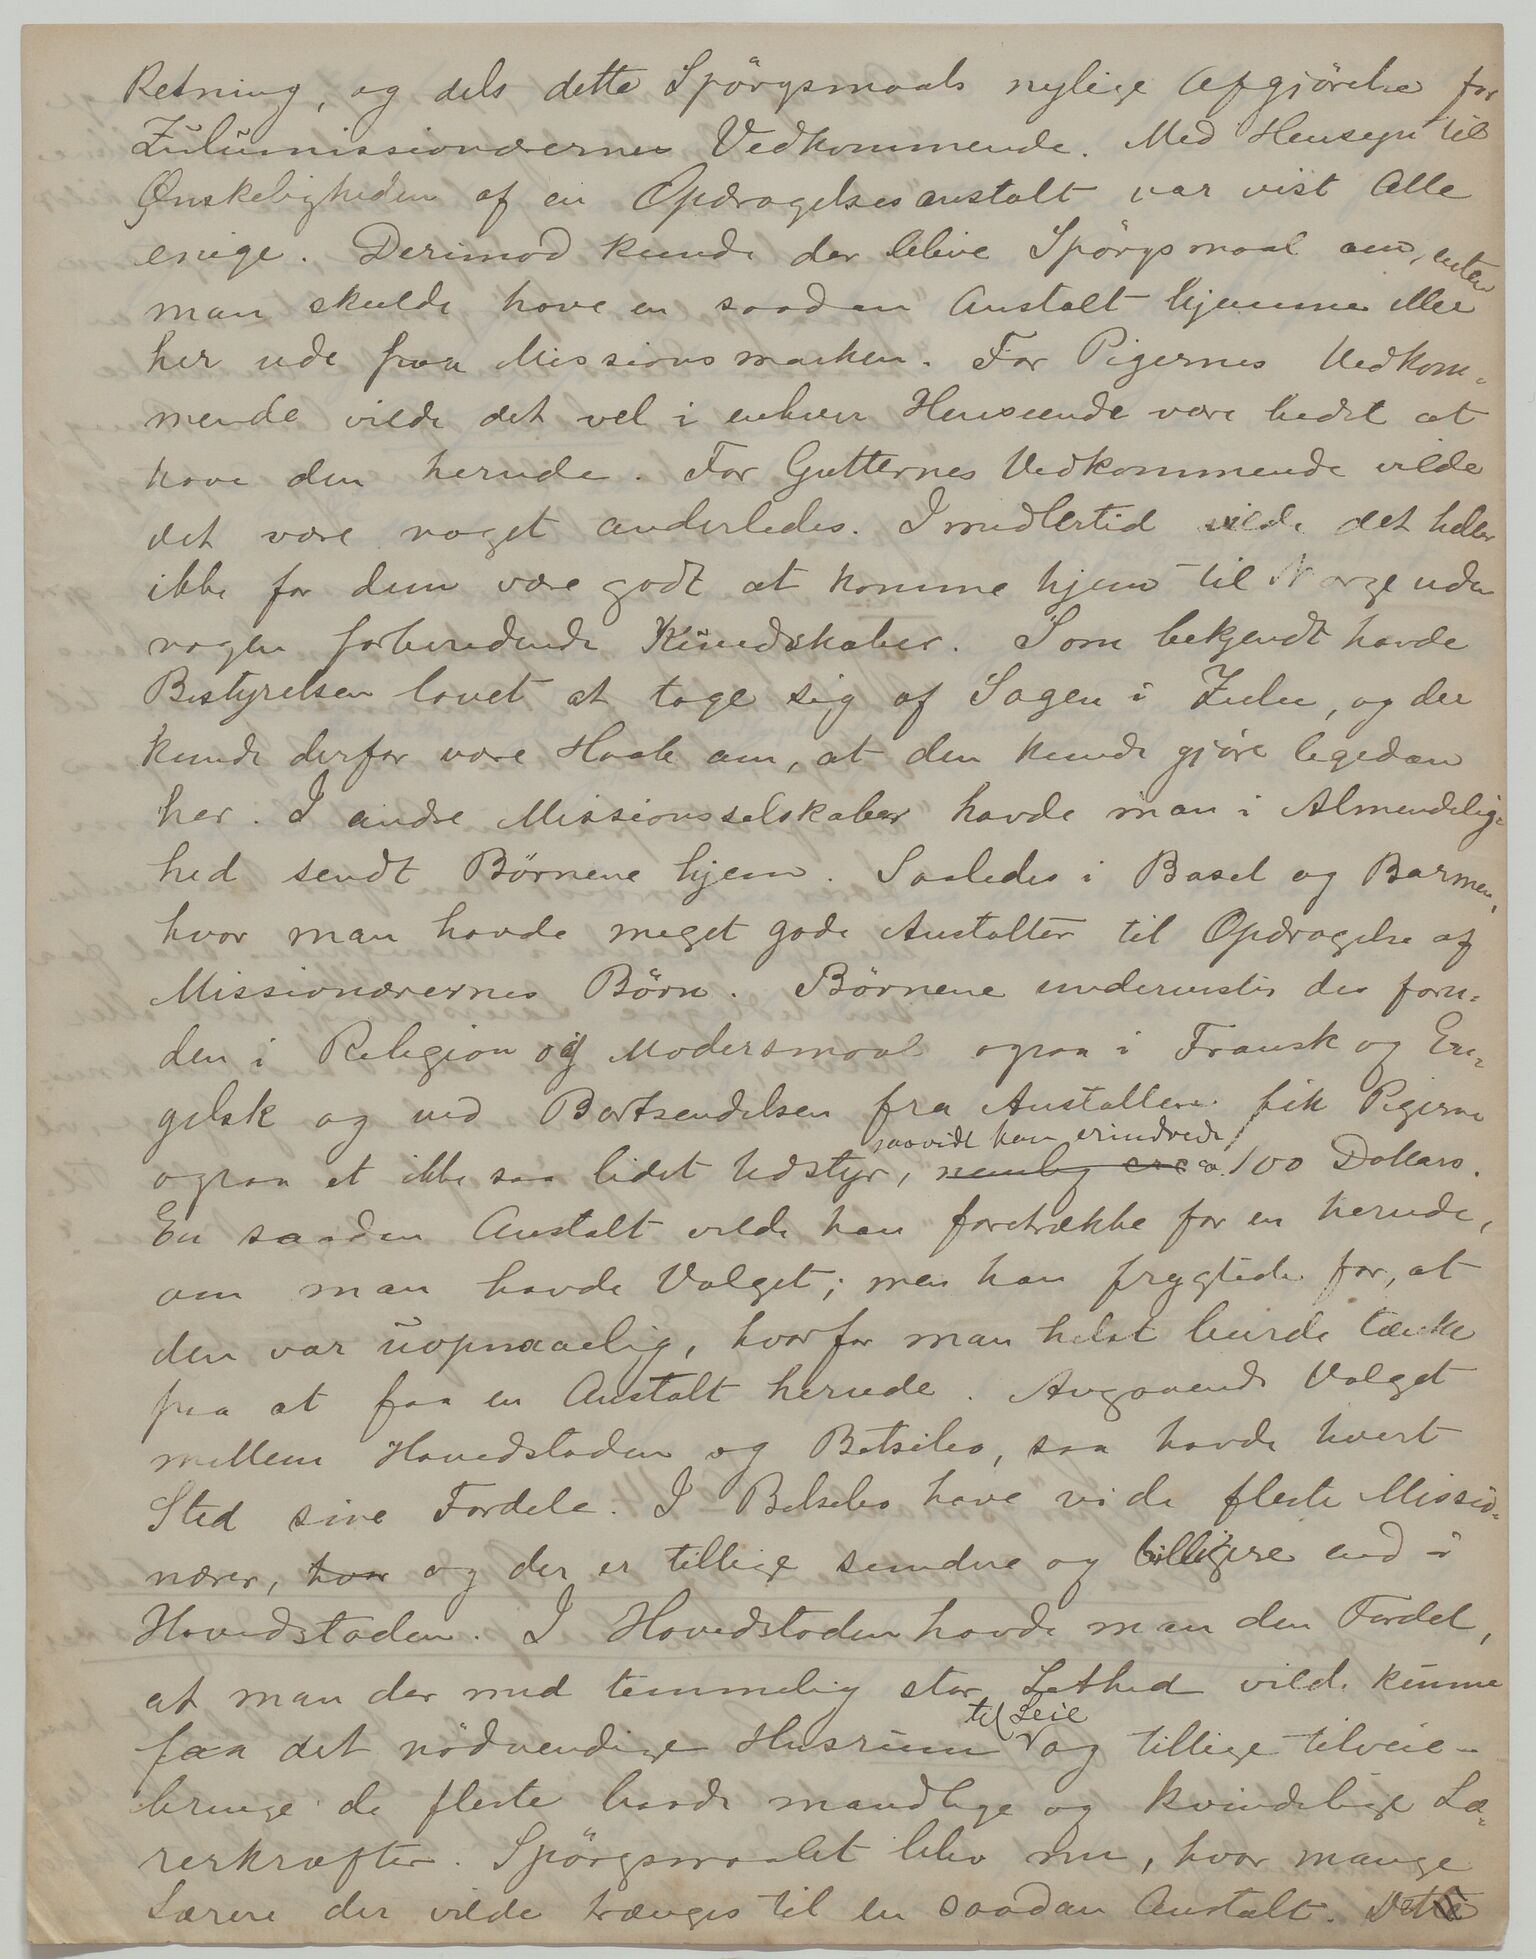 Retning, og dels dette Spörgsmaals nylige Afgjörelse for
Zulumissionærernes Vedkommende. Med Hensyn til
Ønskeligheden af en Opdragelsesanstalt var vist Alle
enige. Derimod kunde der blive Spörgsmaal om, enten
man skulde have en saadan Anstalt hjemme eller
her ude paa Missionsmarken. For Pigernes Vedkom-
mende vilde det vel i enhver Henseende være bedst at
have den herude. For Gutternes Vedkommende vilde
det være noget anderledes. Imidlertid vilde det heller
ikke for dem være godt at komme hjem til Norge uden
nogen forberedende Kundskaber. Som bekjendt havde
Bestyrelsen lovet at tage sig af Sagen i Zulu, og der
kunde derfor være Haab om, at den kunde gjöre ligedan
her. I andre Missionsselskaber havde man i Almindelig-
hed sendt Börnene hjem. Saaledes i Basel og Barmen,
hvor man havde meget gode Anstalter til Opdragelse af
Missionærernes Börn. Börnene undervistes der foru-
den i Religion og Modersmaal ogsaa i Fransk og En-
gelsk og ved Bortsendelsen fra Anstalten fik Pigerne
saavidt han erindrede
ogsaa et ikke saa lidet Udstyr, nemlig circa 100 Dollars.
En saadan Anstalt vilde han foretrække for en herude,
om man havde Valget; men han frygtede for, at
den var uopnaaelig, hvorfor man helst burde tænke
paa at faa en Anstalt herude. Angaaende Valget
mellem Hovedstaden og Betsileo, saa havde hvert
Sted sine Fordele. I Betsileo have vi de fleste Missio-
nærer, hvor og der er tillige sundere og billigere end i
Hovedstaden. I Hovedstaden havde man den Fordel,
at man der med temmelig stor Lethed vilde kunne
til Leie
faa det nödvendige Husrum og tillige tilveie-
bringe de fleste baade mandlige og kvindelige Læ-
rerkræfter. Spörgsmaalet blev nu, hvor mange
Lærere der vilde trænges til en saadan Anstalt. Dette